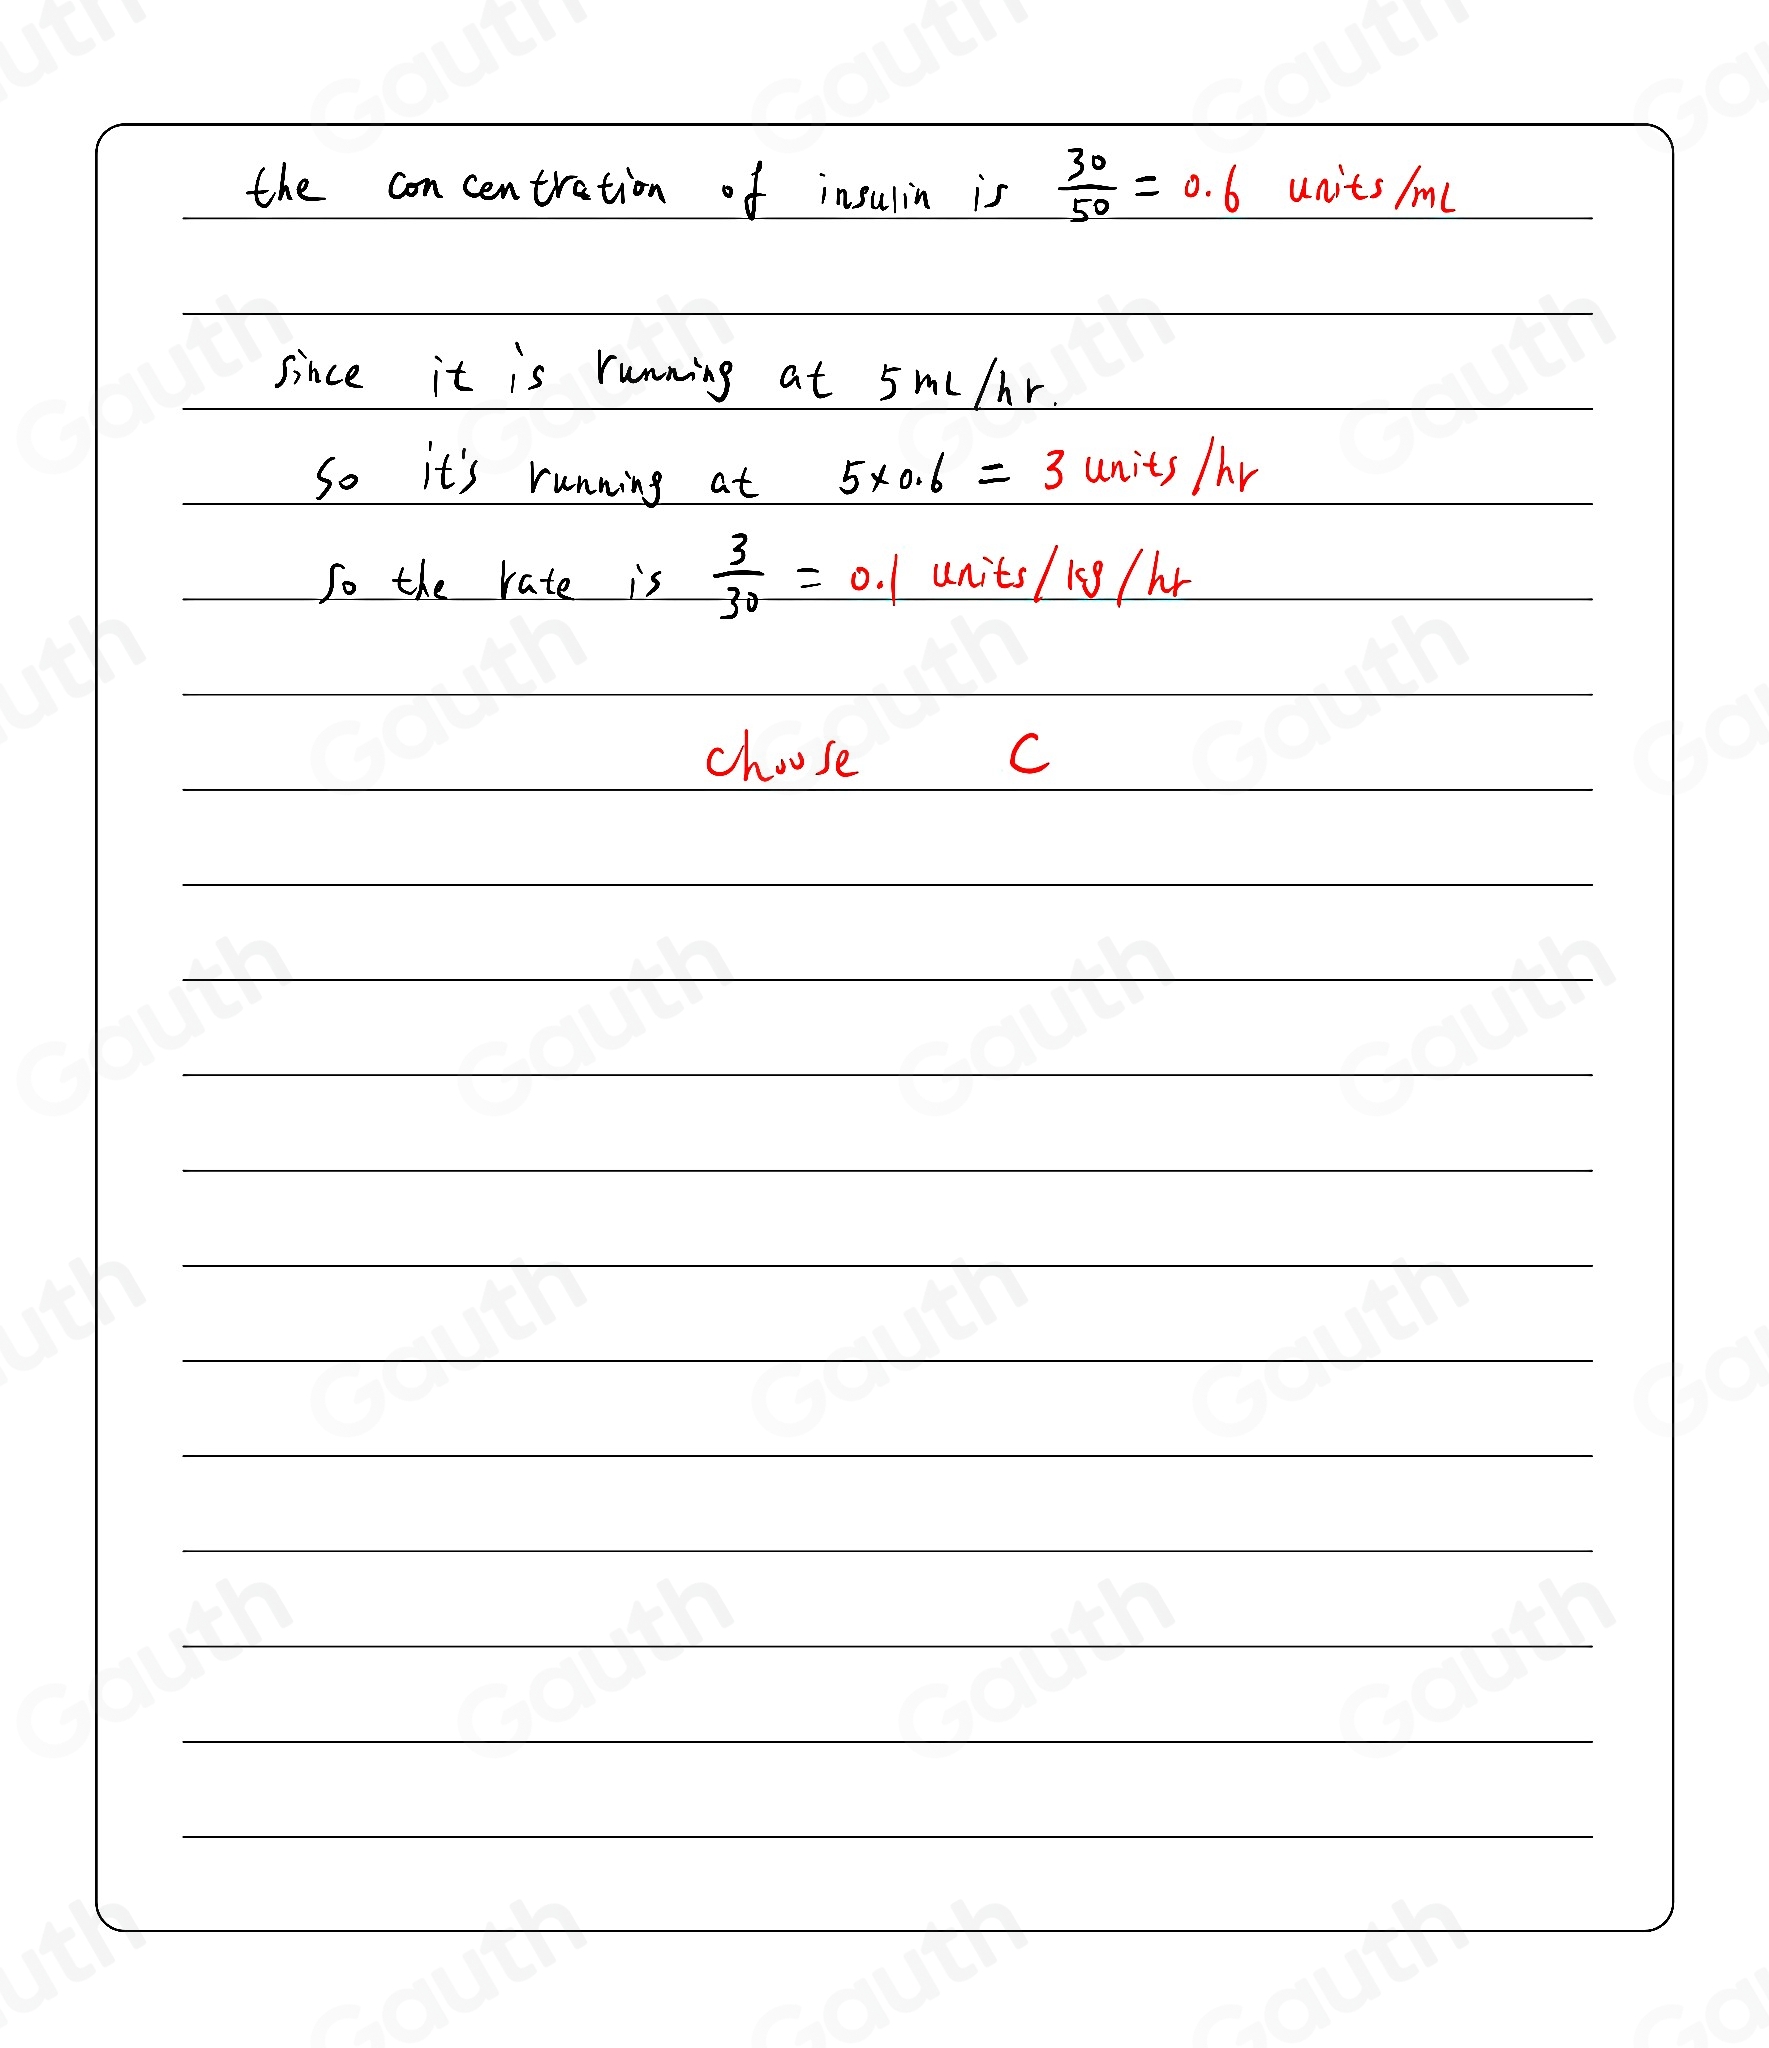 the concentration of insulin is 30/50 = 0.6 units/mL
since it is running at 5mL/hr.
so it's running at 5×0.6 = 3 units/hr
so the rate is 3/30 = 0.1 units/kg/hr
choose C
Gauth